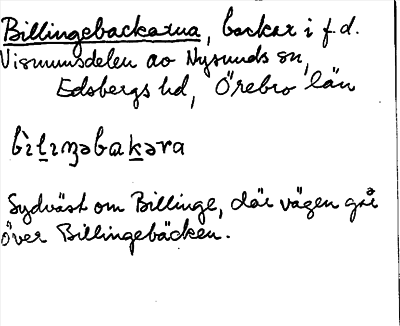 Billingebackarna, backar i f.d.
Visnumsdelen av Nysunds sn,
Edsbergs hd, Örebro län
bìlıŋəbakəra
Sydväst om Billinge, där vägen går
över Billingebäcken.